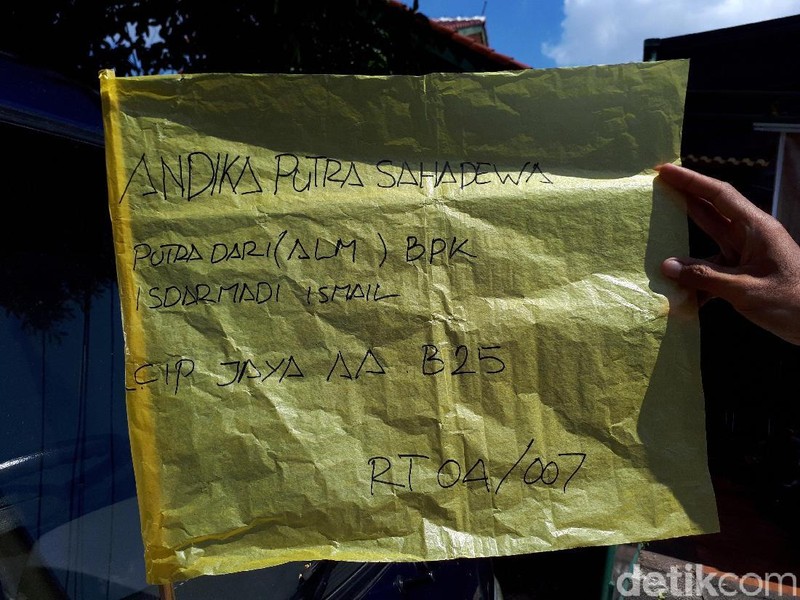 ANDIKA PUTRA SAHADEWA
PUTRA DARI (ALM ) BPK
ISDARMADI ISMAIL
CIP JAYA AA B25
RT 04/007
detikcom